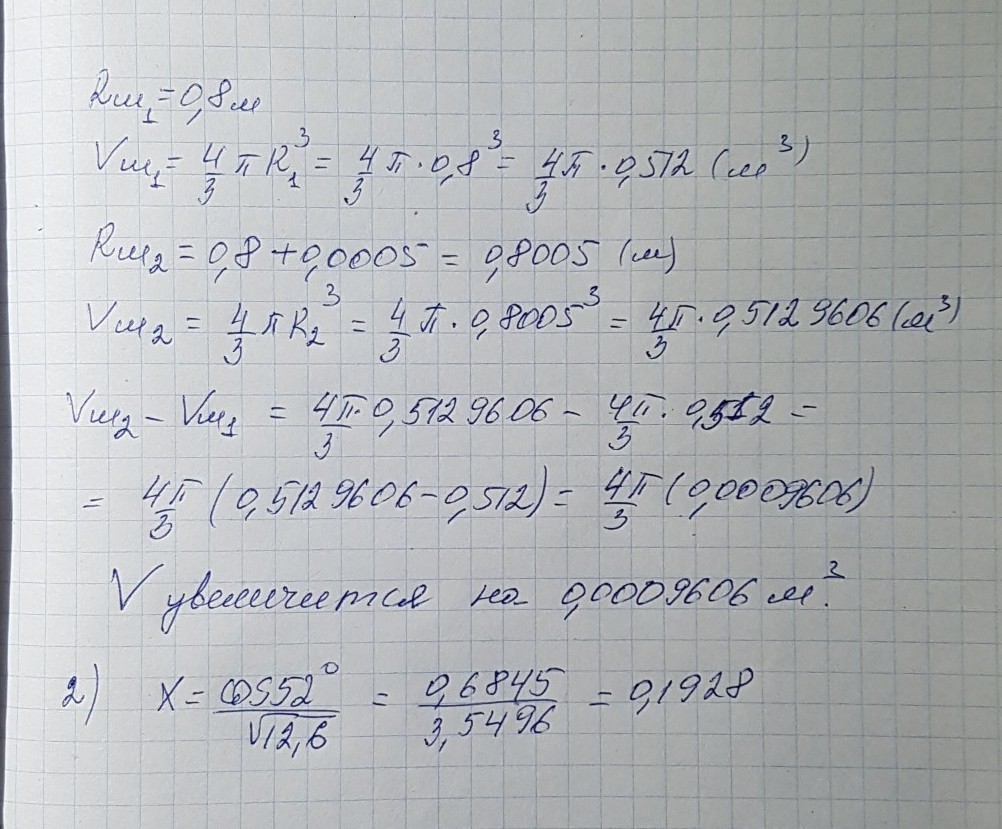 Rш₁ = 0,8 м
Vш₁ = 4/3 π R₁³ = 4/3 π · 0,8³ = 4/3 π · 0,512 (м³)
Rш₂ = 0,8 + 0,0005 = 0,8005 (м)
Vш₂ = 4/3 π R₂³ = 4/3 π · 0,8005³ = 4π/3 · 0,5129606 (м³)
Vш₂ – Vш₁ = 4π/3 · 0,5129606 – 4π/3 · 0,512 =
= 4π/3 (0,5129606 – 0,512) = 4π/3 (0,0009606)
V увеличится на 0,0009606 м³.
2) X = cos52°/√12,6 = 0,6845/3,5496 = 0,1928